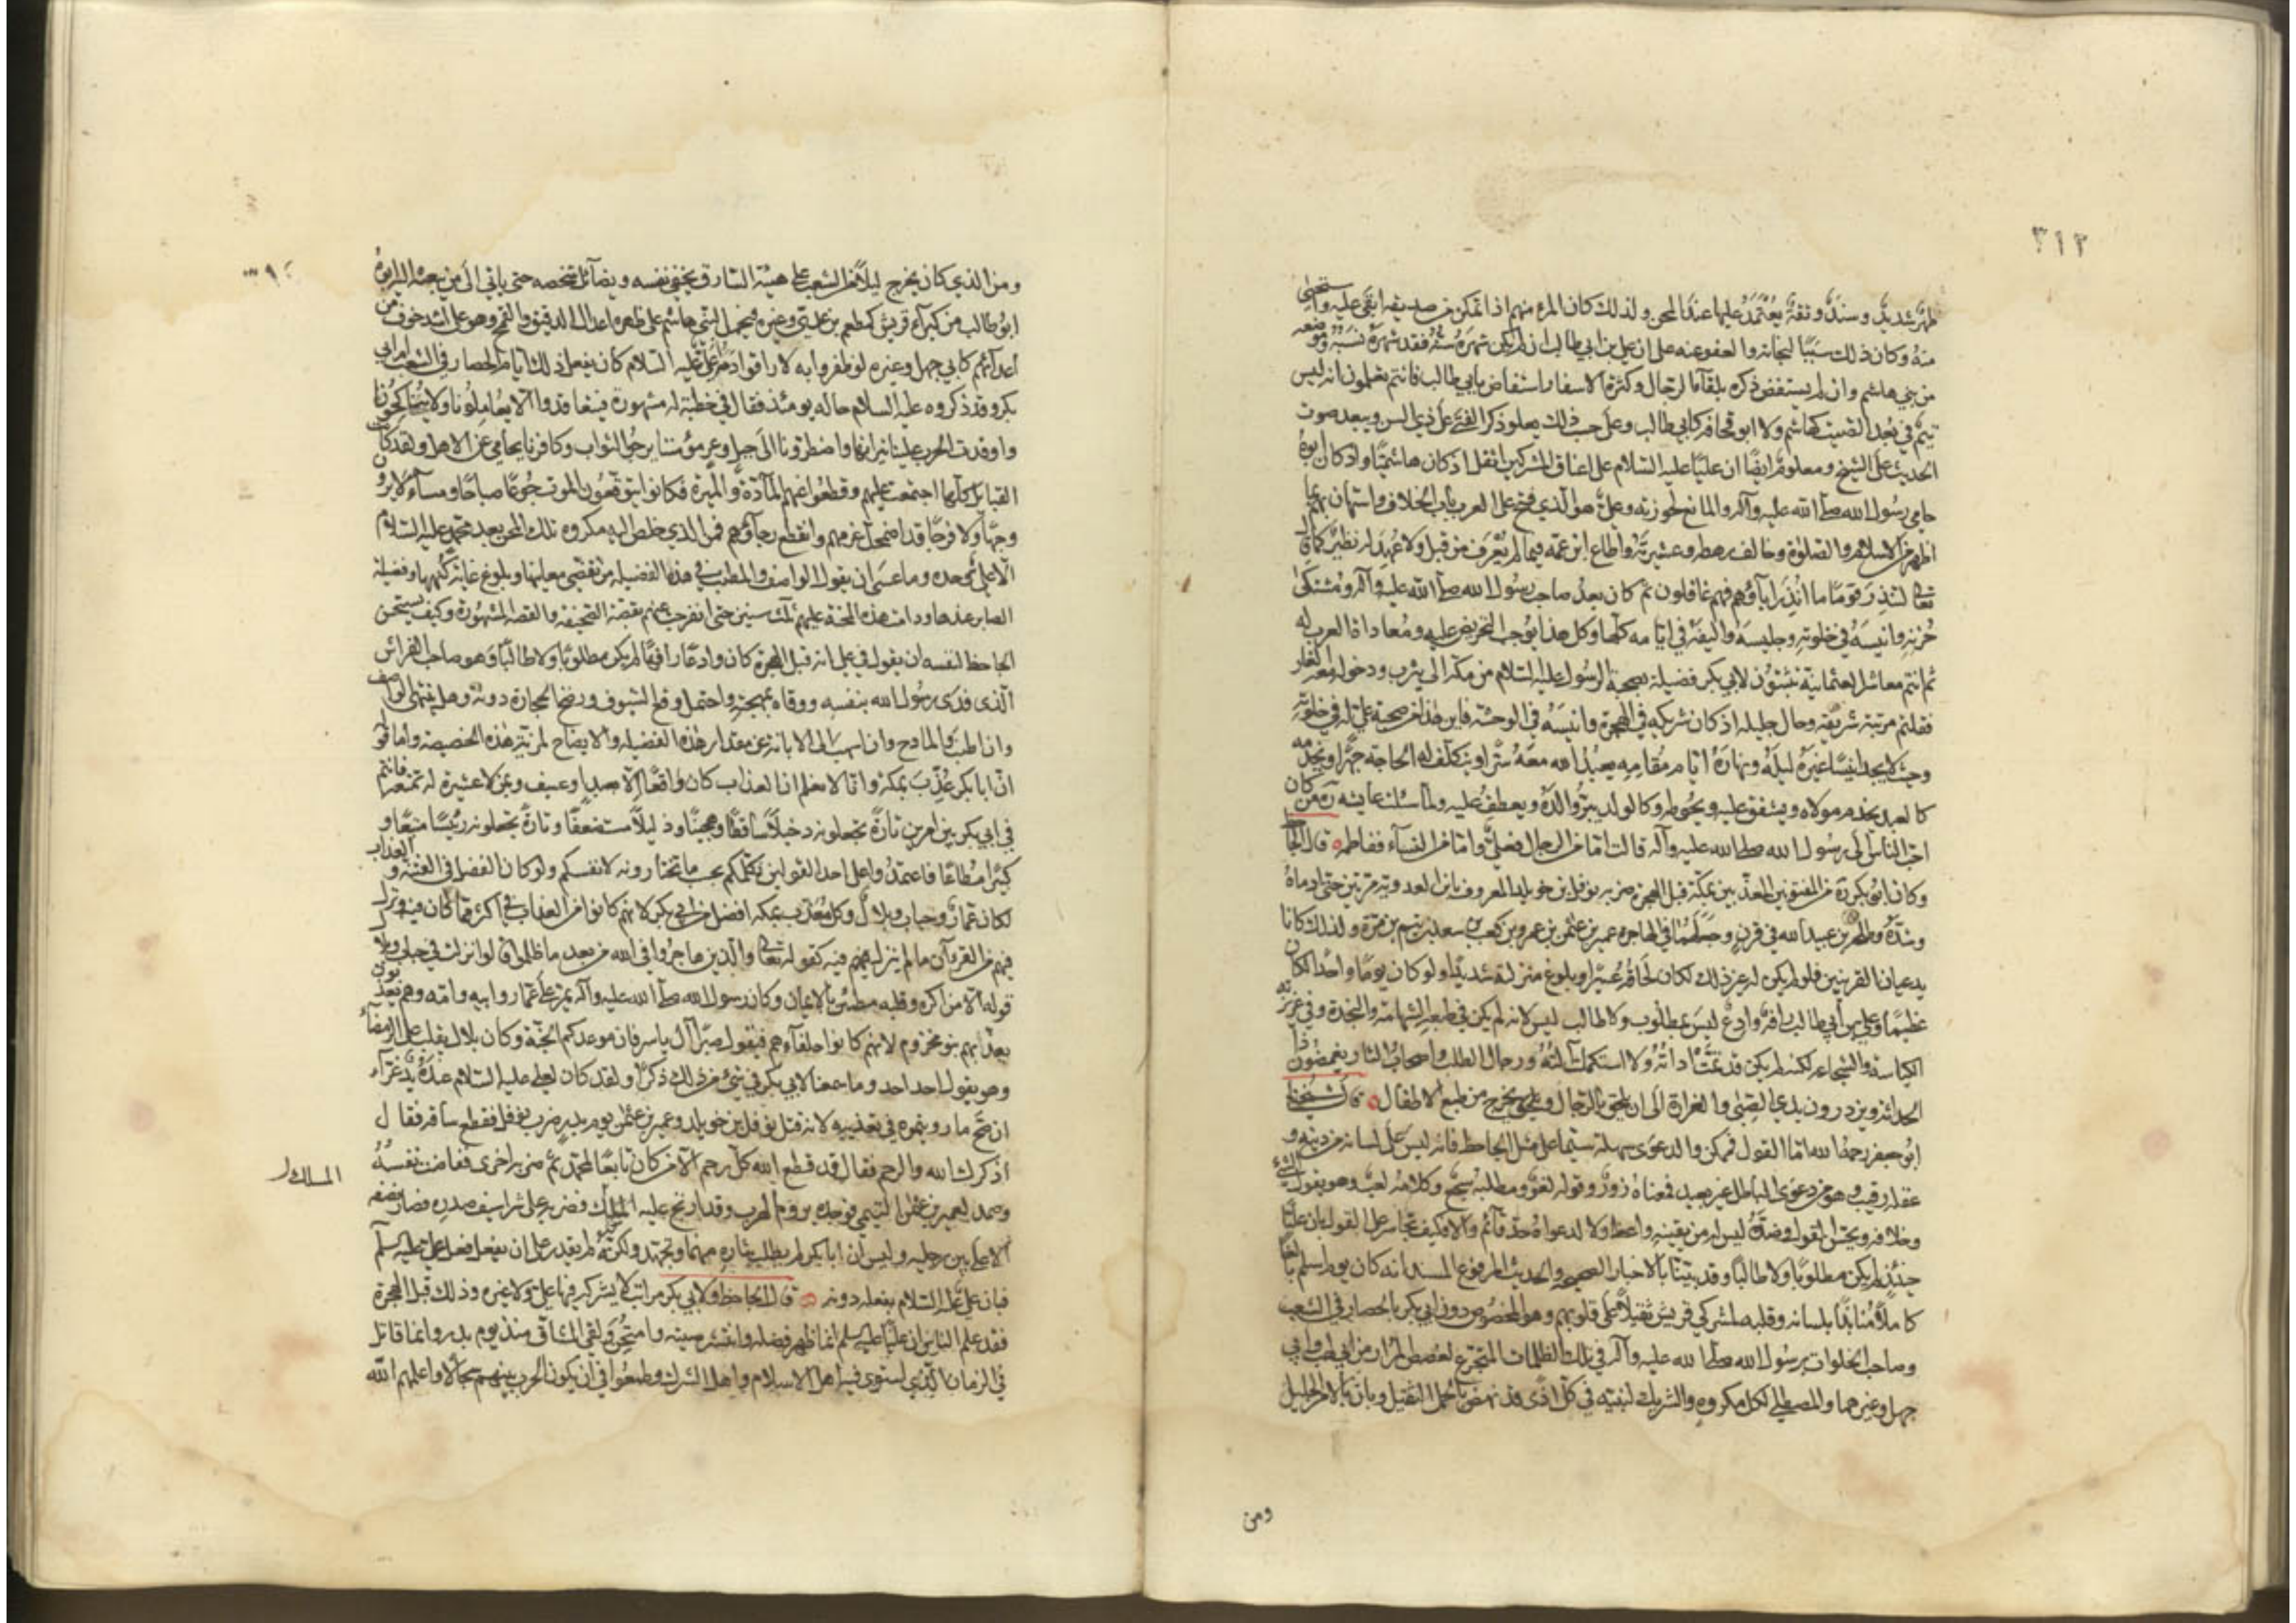 ٣١٢
ظهر شديد وسند وثقة يعتمد عليها عند المحن ولذلك كان المرء منهم اذا تمكن من صديقه ابقى عليه واستحيى
منه وكان ذلك سببا لنجاته والعفو عنه على ان علي بن ابي طالب ان لم يكن شهره سنه فقد شهره نسبه وموضعه
من بني هاشم وان لم يستفض ذكره بلقاء الرجال وكثرة الاسفار استفاض بابي طالب فانتم تعلمون انه ليس
تيم في بعد الصيت كهاشم ولا ابو قحافة كابي طالب وعلى حسب ذلك يعلو ذكر الفتى على ذي السن ويبعد صوت
الحديث على الشيخ ومعلوم ايضا ان عليا عليه السلام على اعناق المشركين اثقل اذ كان هاشميا واذ كان ابوه
حامي رسول الله صلى الله عليه وآله والمانع لحوزته وعلي هو الذي فتح على العرب باب الخلاف واستهان بهم بما
اظهر من الاسلام والصلوة وخالف رهطه وعشيرته واطاع ابن عمه فيما لم يعرف من قبل ولا عهد له نظير كما قال
تعالى لتنذر قوما ما انذر آباؤهم فهم غافلون ثم كان بعد صاحب رسول الله صلى الله عليه وآله ومشتكى
حزنه وانيسه في خلوته وجليسه واليفه في ايامه كلها وكل هذا يوجب التحريض عليه ومعاداة العرب له
ثم انتم معاشر العثمانية تثبتون لابي بكر فضيلة بصحبة الرسول عليه السلام من مكة الى يثرب ودخوله معه الغار
فقلتم مرتبة شريفة وحال جليلة اذ كان شريكه في الهجرة وانيسه في الوحشة فاين هذا من صحبة علي له في خلوته
وحيث لا يجد انيسا غيره ليله ونهاره ايام مقامه يعبد الله معه سرا ويتكلف له الحاجة جهرا ويخدمه
كالعبد يخدم مولاه ويشفق عليه ويحوطه وكالولد يبر والده ويعطف عليه ولما سئلت عايشه ره من كان
احب الناس الى رسول الله صلى الله عليه وآله قالت اما من الرجال فعلي واما من النساء ففاطمه قال الجاحظ
وكان ابو بكر ره من المفتونين المعذبين بمكة قبل الهجرة ضربه نوفل بن خويلد المعروف بابن العدوية مرتين حتى ادماه
وشده وطلحة بن عبيد الله في قرن وجعلهما في الهاجرة عمير بن عثمن بن عمرو بن كعب بن سعد بن تيم بن مرة ولذلك كانا
يدعيان القرينين فلو لم يكن له غير ذلك لكان لحاقه عسيرا وبلوغ منزلته شديدا ولو كان يوما واحدا لكان
عظيما وعلي بن ابي طالب رافه وادع ليس بمطلوب ولا طالب ليس لانه لم يكن في طبعه الشهامة والنجدة وفي غريزته
الكياسة والشجاعة لكنه لم يكن قد تمت اداته ولا استكملت آلته ورجال الطلب واصحاب الثار يغمصون ذا
الحداثة ويزدرون بذي الصبى والغرارة الى ان يلحق بالرجال ويخرج من طبع الاطفال قال شيخنا
ابو جعفر رحمه الله اما القول فممكن والدعوى سهلة سيما على مثل الجاحظ فانه ليس على لسانه من دينه و
عقله رقيب وهو من دعوى الباطل غير بعيد فمعناه نزر وقوله لغو ومطلبه سجع وكلامه لعب ولهو يقول الشيء
وخلافه ويحسن القول وضده ليس له من نفسه واعظ ولا لدعواه حد قائم والا فكيف تجاسر على القول بان عليا
حينئذ لم يكن مطلوبا ولا طالبا وقد بينا بالاخبار الصحيحه والحديث المرفوع المسند انه كان يوم اسلم بالغا
كاملا منابذا بلسانه وقلبه لمشركي قريش ثقيلا على قلوبهم وهو المخصوص دون ابي بكر بالحصار في الشعب
وصاحب الخلوات برسول الله صلى الله عليه وآله في تلك الظلمات المتجرع لغصص المرار من ابي لهب وابي
جهل وغيرهما والمصطلي لكل مكروه والشريك لنبيه في كل اذى قد نهض بالحمل الثقيل وبان بالامر الجليل
ومن
ومن الذي كان يخرج ليلا من الشعب على هيئة السارق يخفي نفسه ويضائل شخصه حتى ياتي الى من يبعثه اليه ابوه
ابو طالب من كبراء قريش كمطعم بن عدي وغيره فيحمل لبني هاشم على ظهره اعدال الدقيق والقمح وهو على اشد خوف من
اعدائهم كابي جهل وغيره لو ظفروا به لاراقوا دمه اعلي عليه السلام كان يفعل ذلك ايام الحصار في الشعب ام ابي
بكر وقد ذكروه عليه السلام حاله يومئذ فقال في خطبة له مشهورة فتعاقدوا الا يعاملونا ولا يناكحونا
واوقدت الحرب علينا نيرانها واضطرونا الى جبل وعر مؤمننا يرجو الثواب وكافرنا يحامي عن الاهل ولقد كانت
القبايل كلها اجتمعت عليهم وقطعوا عنهم المادة والميرة فكانوا يتوقعون الموت جوعا صباحا ومساء لا يرون
وجها ولا فرجا قد اضمحل عزمهم وانقطع رجاؤهم فمن الذي خلص اليه مكروه تلك المحن بعد محمد عليه السلام
الا علي وحده وما عسى ان يقول الواصف والمطنب في هذه الفضيلة من تقصي معانيها وبلوغ غاية كنهها وفضيلة
الصابر عندها ودامت هذه المحنة عليهم ثلث سنين حتى انفرجت عنهم بقصة الصحيفة والقصة المشهورة وكيف يستحسن
الجاحظ لنفسه ان يقول في علي انه قبل الهجرة كان وادعا رافها لم يكن مطلوبا ولا طالبا وهو صاحب الفراش
الذي فدى رسول الله بنفسه ووقاه بمهجته واحتمل وقع السيوف ورضخ الحجارة دونه وهل ينتهي الواصف
وان اطنب والمادح وان اسهب الى الابانة عن مقدار هذه الفضيلة والايضاح لمزية هذه الخصيصة واما قوله
ان ابا بكر عذب بمكة فانا لا نعلم ان العذاب كان واقعا الا بعبد او عسيف ولمن لا عشيرة له تمنعه فانتم
في ابي بكر بين امرين تارة تجعلونه دخيلا ساقطا وهجينا وذليلا مستضعفا وتارة تجعلونه رئيسا متبعا و
كبيرا مطاعا فاعتمدوا على احد القولين نكلمكم بحسب ما تختارونه لانفسكم ولو كان الفضل في الفتنة والعذاب
لكان عمار وخباب وبلال وكل معذب بمكه افضل من ابي بكر لانهم كانوا من العذاب في اكثر مما كان فيه ونزل
فيهم من القرآن ما لم ينزل فيه كقوله تعالى والذين هاجروا في الله من بعد ما ظلموا قالوا نزلت في خباب وبلال
قوله الا من اكره وقلبه مطمئن بالايمان وكان رسول الله صلى الله عليه وآله يمر على عمار وابيه وامه وهم يعذبون
يعذبهم بنو مخزوم لانهم كانوا حلفاءهم فيقول صبرا آل ياسر فان موعدكم الجنة وكان بلال يقلب على الرمضاء
وهو يقول احد احد وما سمعنا لابي بكر في شيء من ذلك ذكرا ولقد كان لعلي عليه السلام عنده يد غراء
ان صح ما رويتموه في تعذيبه لانه قتل نوفل بن خويلد وعمير بن عثمن يوم بدر ضرب نوفلا فقطع ساقه فقال
اذكرك الله والرحم فقال قد قطع الله كل رحم الا من كان تابعا لمحمد ثم ضربه اخرى ففاضت نفسه
وصمد لعمير بن عثمن التيمي فوجده يروم الهرب وقد ارتج عليه المسلك فضربه على شراسيف صدره فصار نصفه
الاعلى بين رجليه وليس ان ابا بكر لم يطلب بثاره منهما ويجتهد ولكنه لم يقدر على ان يفعل فعل علي عليه السلم
فبان علي عليه السلام بفعله دونه قال الجاحظ ولابي بكر مراتب لا يشركه فيها علي ولا غيره وذلك قبل الهجرة
فقد علم الناس ان عليا عليه السلم انما ظهر فضله وانتشر صيته وامتحن ولقي المشاق منذ يوم بدر وانما قاتل
في الزمان الذي استوى فيه اهل الاسلام واهل الشرك وطمعوا في ان يكون الحرب بينهم سجالا واعلمهم الله
المسلك